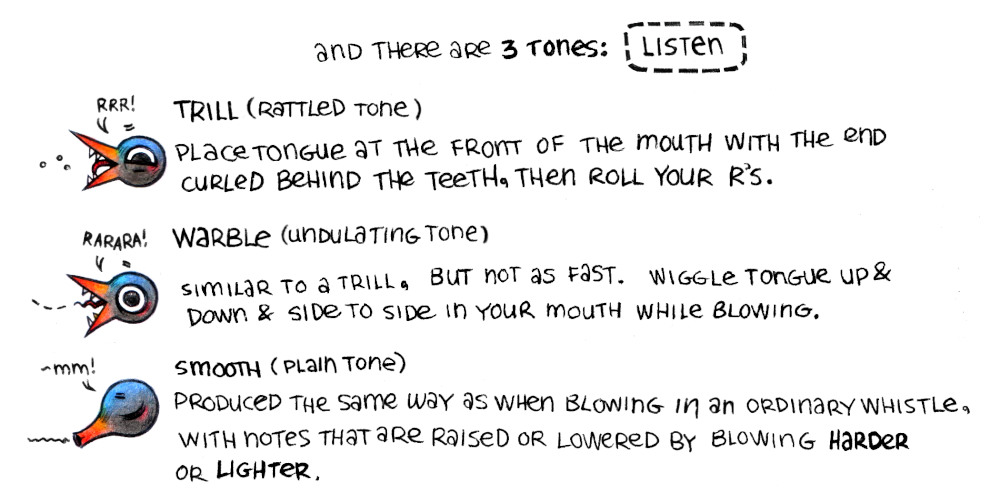 and THere are 3 Tones: LISTen
RRR!
TRILL (RaTTLeD Tone)
PLaCe TonGue aT THe FRonT OF THe mouTH WITH THe enD
CURLeD BeHinD THe TeeTH, THen ROLL YOUR R's.
RARARA!
WaRBLe (unDuLaTinG Tone)
SimiLaR TO a TRILL, BUT noT as FasT. WiGGLe TonGue up &
Down & SiDe TO SiDe in YOUR mouTH WHiLe BLOWinG.
~mm!
SmooTH (PLain Tone)
PRODuCeD THe Same way as WHen BLOWinG in an ORDinaRY WHisTLe,
WiTH noTes THaT are RaiseD OR LOWeReD BY BLOWinG HaRDeR
OR LiGHTeR.